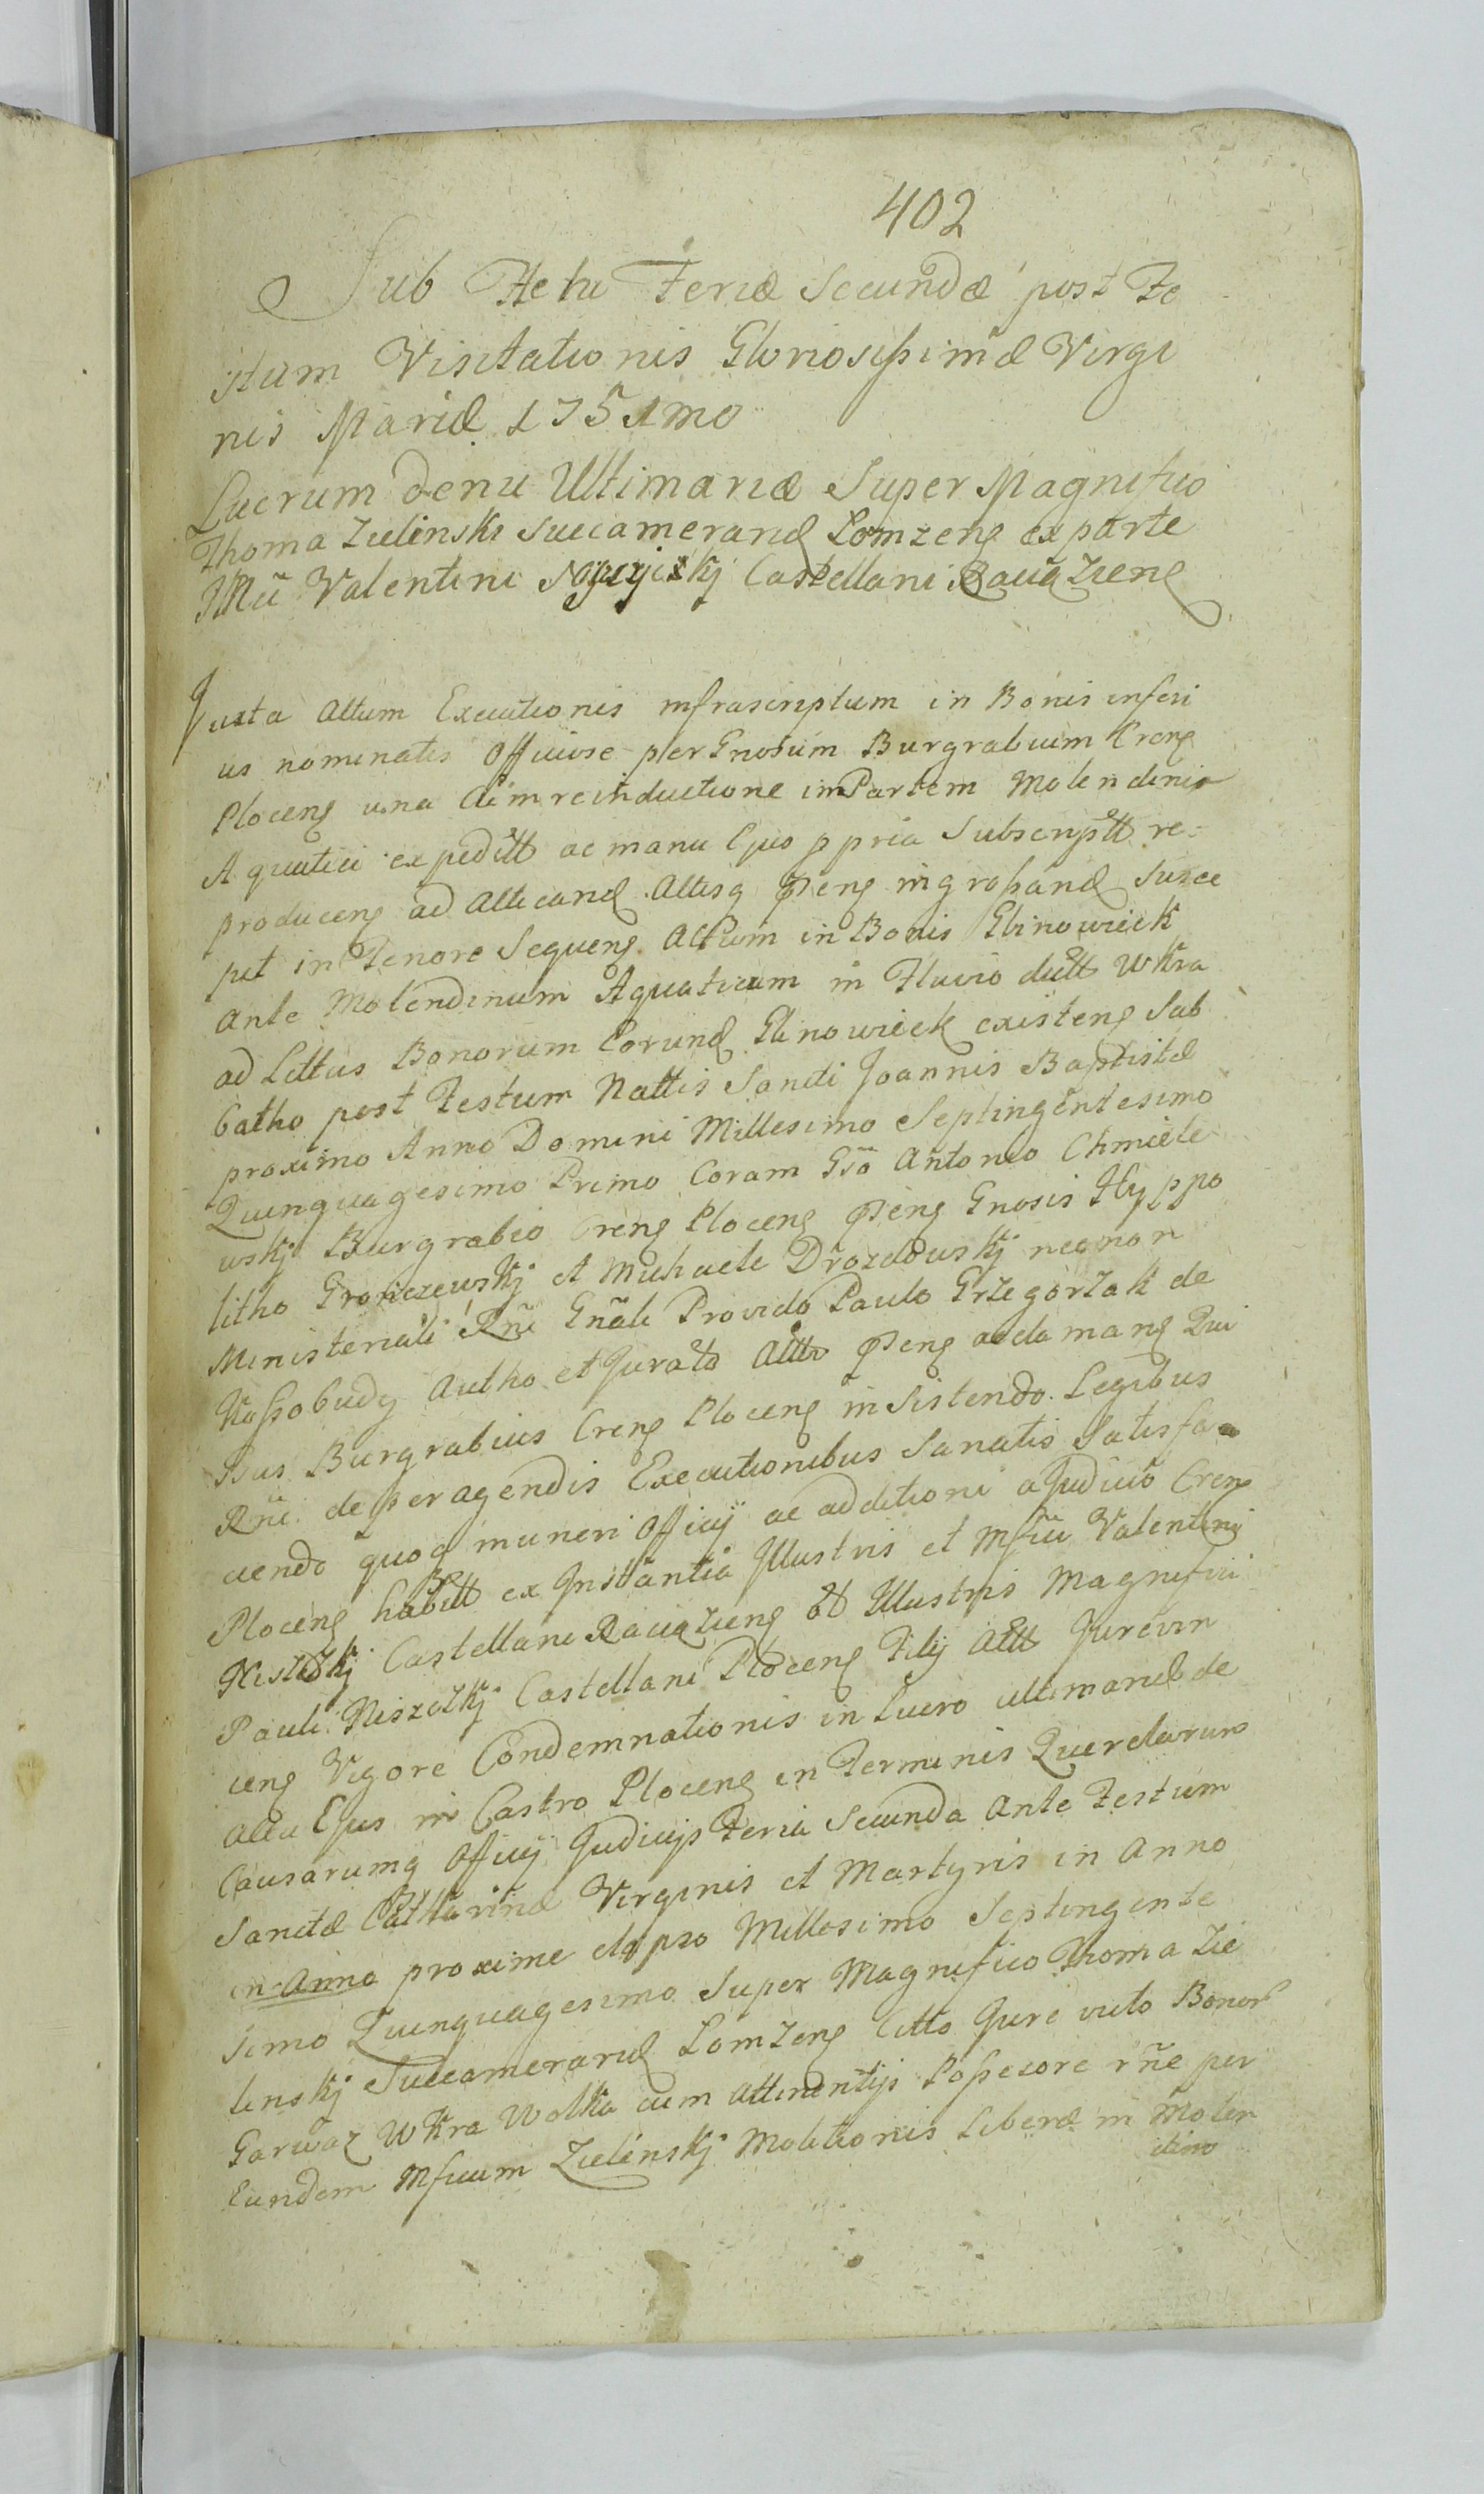 402
Sub Actu Feriæ Secundæ post Fe
stum Visitationis Gloriosissimæ Virgi
nis Mariæ 1751mo
Lucrum denu Ultimariæ Super Magnifico
Thoma Zielinski Succamerarid Lomzeng ex parte
Valentini Castellani Raciązieng
Juxta Actum Executionis infrascriptum in Bonis inferi
us nominatis Officiose per Gnosum Burgrabium Creng
Ploceng una Cum reinductione in Partem Molendini
Aquatici expeditt ac manu Ejus ppria Subscriptt re
produceng ad Acticand Actisq Pteng ingrossand Susce
pit in Tenore Sequeng Actum in Bonis Glinowieck
Ante Molendinum Aquaticum in Fluvio dictt Wkra
ad Littus Bonorum Eorund Glinowieck existeng Sab
batho post Festum Nattis Sancti Joannis Baptistæ
proximo Anno Domini Millesimo Septingentesimo
Quinquagesimo Primo Coram Gso Antonio Chmiele
wskj Burgrabio Creng Ploceng Pteng Gnosis Hyppo
litho Gronczewskj et Michaele Drozdowskj necnon
Ministeriali Rñi Gnãli Provido Paulo Grzegorzak de
Kossobudy Autho et Jurato Actto Pteng acclamang Qui
Psus Burgrabius Creng Ploceng insistendo Legibus
Rñi de peragendis Executionibus Sanatis Satisfa
ciendo quoq muneri Officij ac additioni a Judicio Creng
Ploceng habitt ex Instantia Illustris et Mfici Valentini
Castellani Raciązieng et Illustris Magnifici
Pauli Niszczkj Castellani Ploceng Filij Actt Jurevin
ceng Vigore Condemnationis in Lucro ultimariæ de
actu Ejus in Castro Ploceng in Terminis Querelarum
Causarumq Officij Judicijs Feria Secunda Ante Festum
Sanctæ Catharinæ Virginis et Martyris in Anno
in Anno proxime elapso Millesimo Septingente
simo Quinquagesimo Super Magnifico Thoma Zie
linskj Succamerarid Lomzeng Citto Jure victo Bonor
Garwaz Wkra Wolka cum attinentijs Possesore rñe per
Eundem Mficum Zielinskj Molitionis Liberæ in Molen
dino